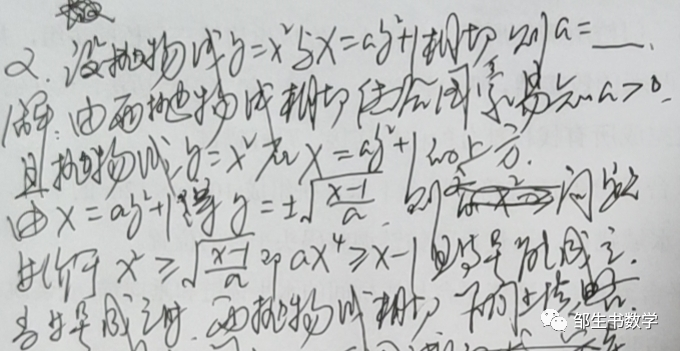 2. 设抛物线y=x²与x=ay²+1相切,则a=___.
解:由两抛物线相切结合图象易知a>0.
且抛物线y=x²在x=ay²+1的上方.
由x=ay²+1得y=±√((x-1)/a). 则 问题
等价于x²≥√((x-1)/a)即ax⁴≥x-1且等号能成立.
当等号成立时,两抛物线相切.下同上法略.
邹生书数学